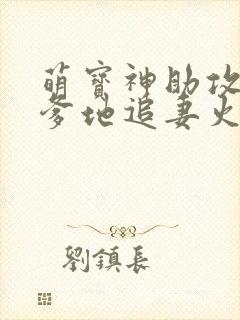 萌寳神助攻
爹地追妻火
劉鎮長